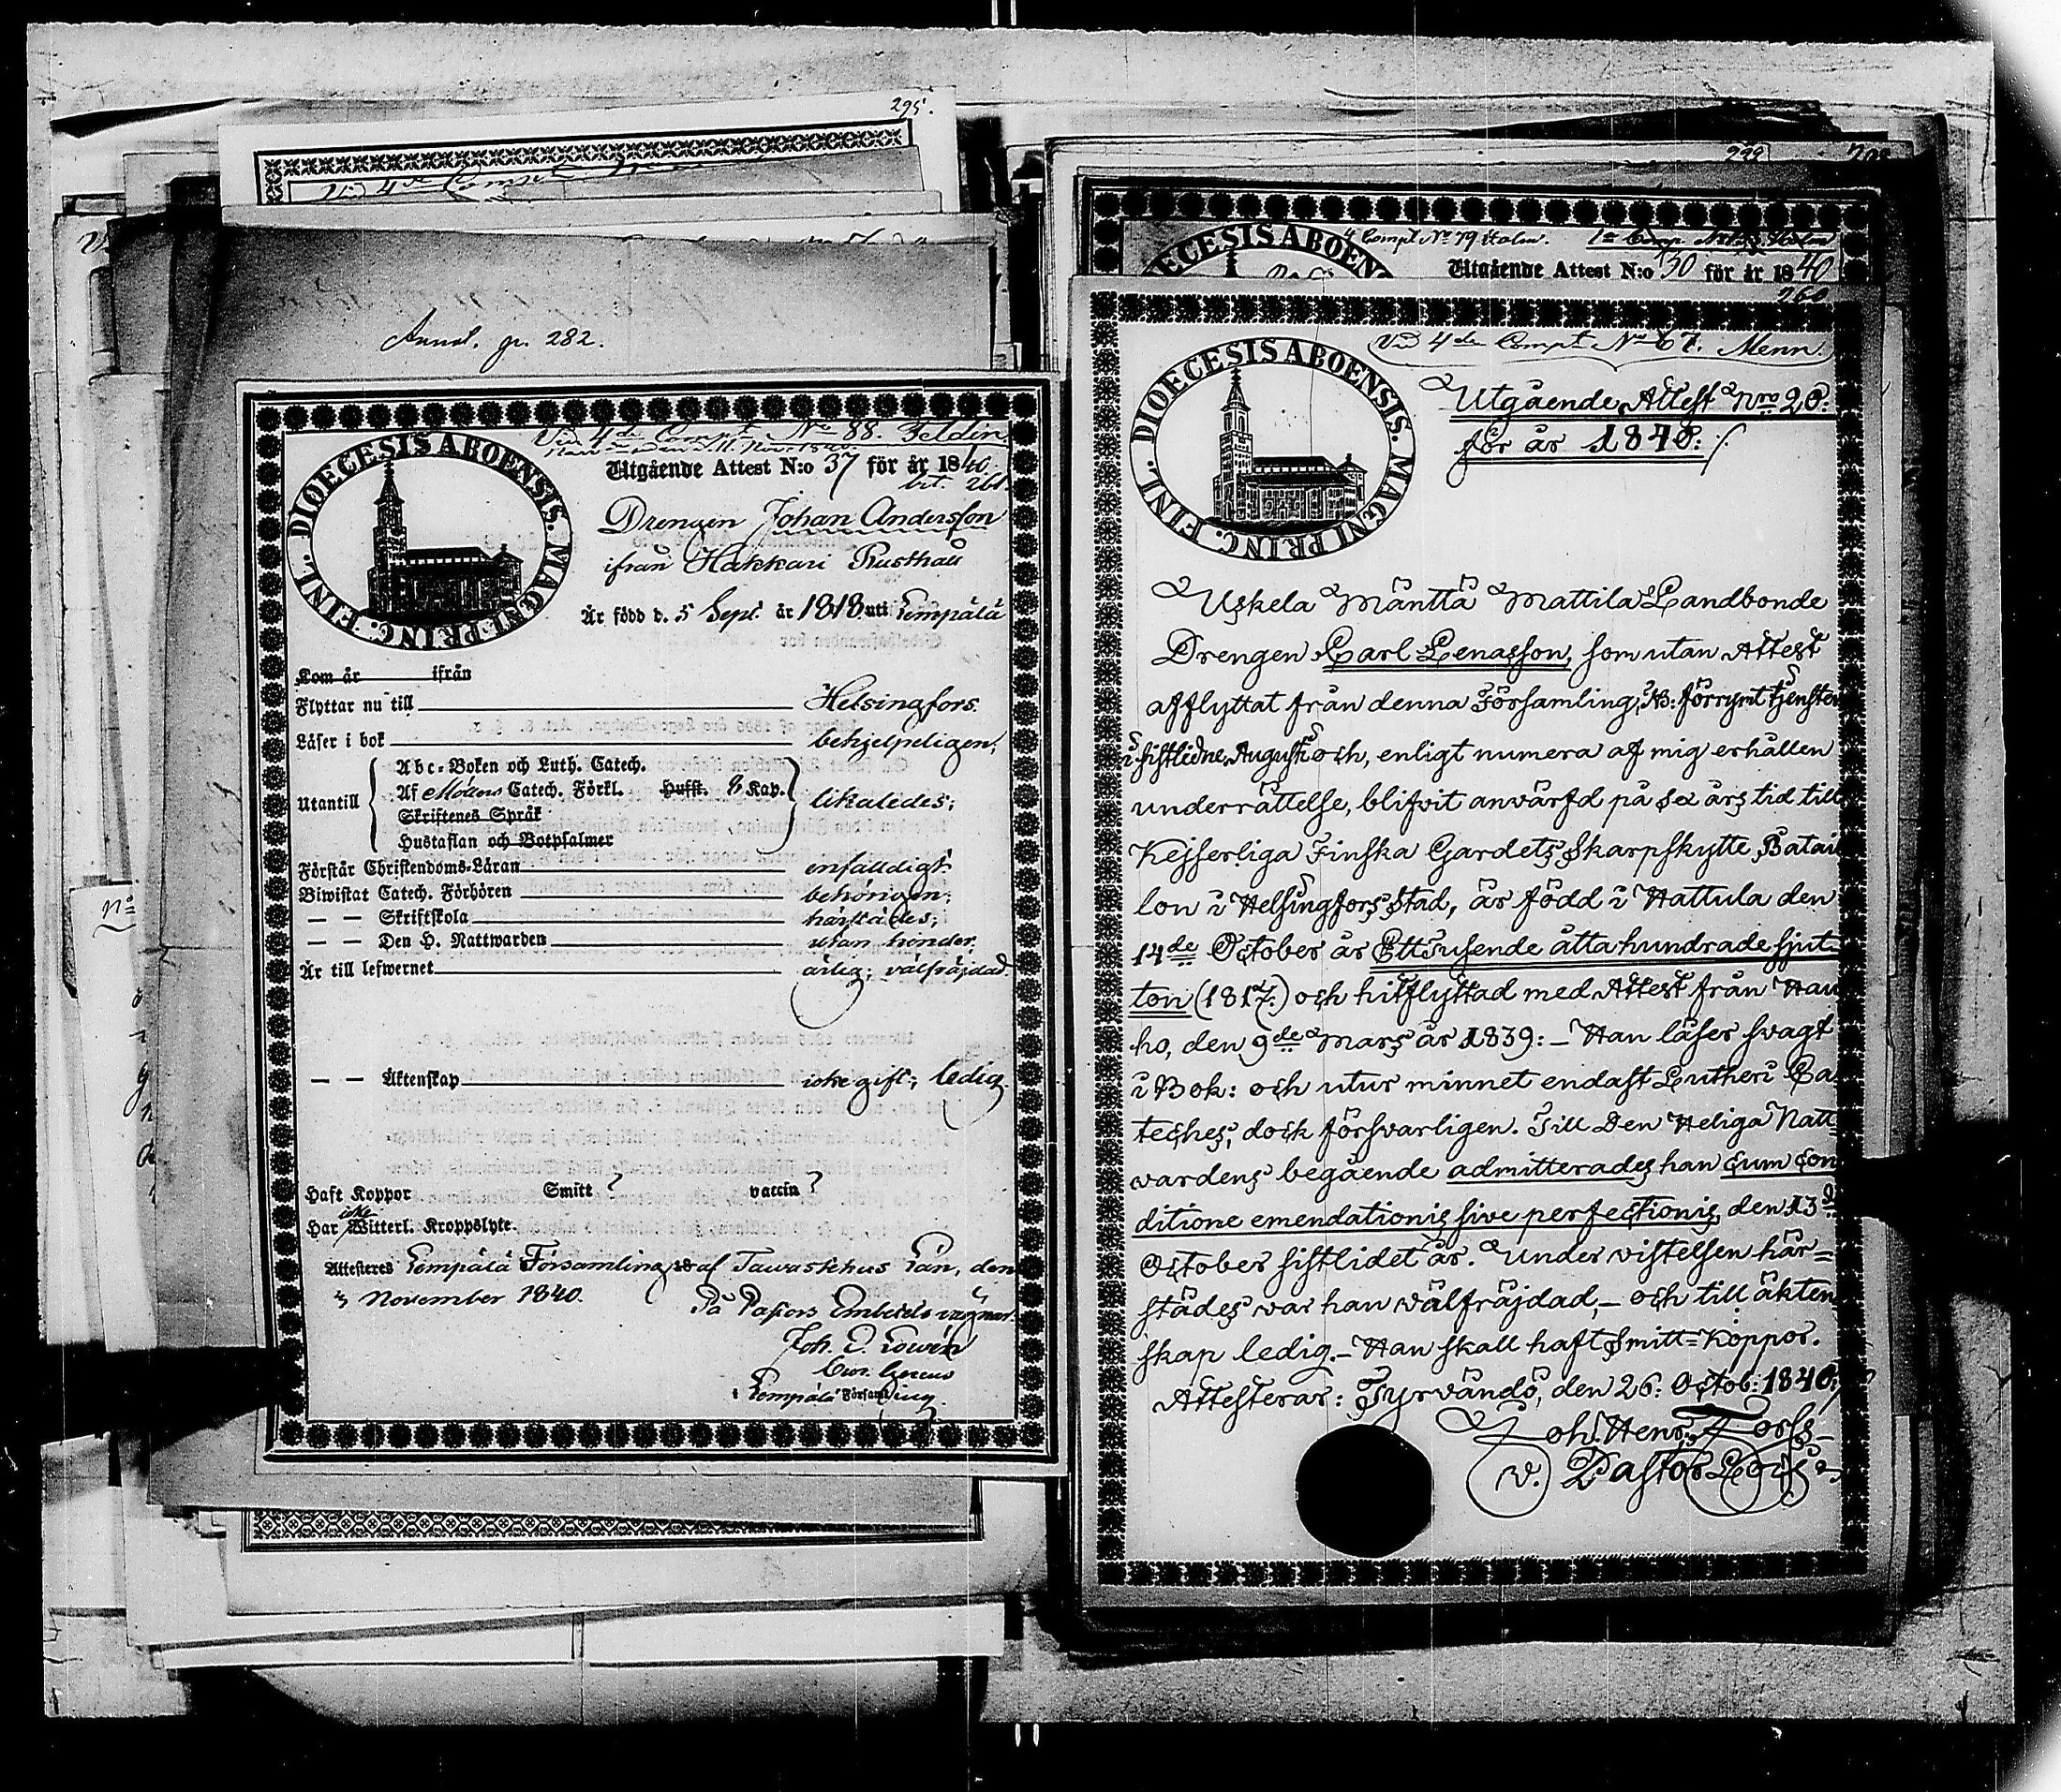 295.
Vid 4de Compt
Annot. gr. 282.
Vid 4de Compt No 88. Feldin.
DIOECESIS ABOENSIS. MAGNI PRINC. FINL.
Utgående Attest N:o 37 för år 1840.
Drengen Johan Andersson
ifrån Hakkari Rusthåll
Är född d. 5 Sept. år 1818 uti Lempälä
Kom år ifrån
Flyttar nu till Helsingfors.
Läser i bok behjelpeligen;
Abc-Boken och Luth. Catech.
Utantill Af Möllers Catech. Förkl. Hufst. 8 Kap. likaledes;
Skriftenes Språk
Hustaflan och Botpsalmer
Förstår Christendoms-Läran enfaldigt.
Biwistat Catech. Förhören behörigen;
— — Skriftskola härstädes;
— — Den H. Nattwarden utan hinder.
Är till lefwernet ärlig; välfräjdad.
— — Äktenskap icke gift; ledig.
Haft Koppor Smitt ? vaccin ?
icke
Har Witterl. Kroppslyte.
Attesteres Lempälä Församling af Tawastehus Län, den
3 November 1840. På Pastors Embetets vägnar.
Joh. E.
i Lempälä Församling.
299
4 Compt No 79 Holm.
DIOECESIS ABOENSIS
Utgående Attest N:o 30 för år 1840
260
Vid 4de Compt No 67. Menn.
DIOECESIS ABOENSIS. MAGNI PRINC. FINL.
Utgående Attest Nro 20:
för år 1840:
Uskela Mänttä Mattila Landbonde
Drengen Carl Lenasson, som utan Attest
afflyttat från denna Församling, NB: förrymt tjensten
i sistledne Augusti och, enligt numera af mig erhållen
underrättelse, blifvit anvärfd på sex års tid till
Kejserliga Finska Gardets Skarpskytte Batail
lon i Helsingfors Stad, är född i Hattula den
14de October år Ett Tusende åtta hundrade sjut-
ton (1817:) och hitflyttad med Attest från Hau
ho, den 9de Mars år 1839: — Han läser svagt
i Bok: och utur minnet endast Lutheri Ca
teches, dock försvarligen. Till Den Heliga Natt-
vardens begående admitterades han cum con
ditione emendationis sive perfectionis, den 13d
October sistlidet år. Under vistelsen här=
städes var han välfräjdad, — och till äkten
skap ledig. — Han skall haft Smitt=Koppor.
Attesterar: Tyrvändö, den 26: Octob: 1840:
Joh: Henr: Forss
v. Pastor Loci